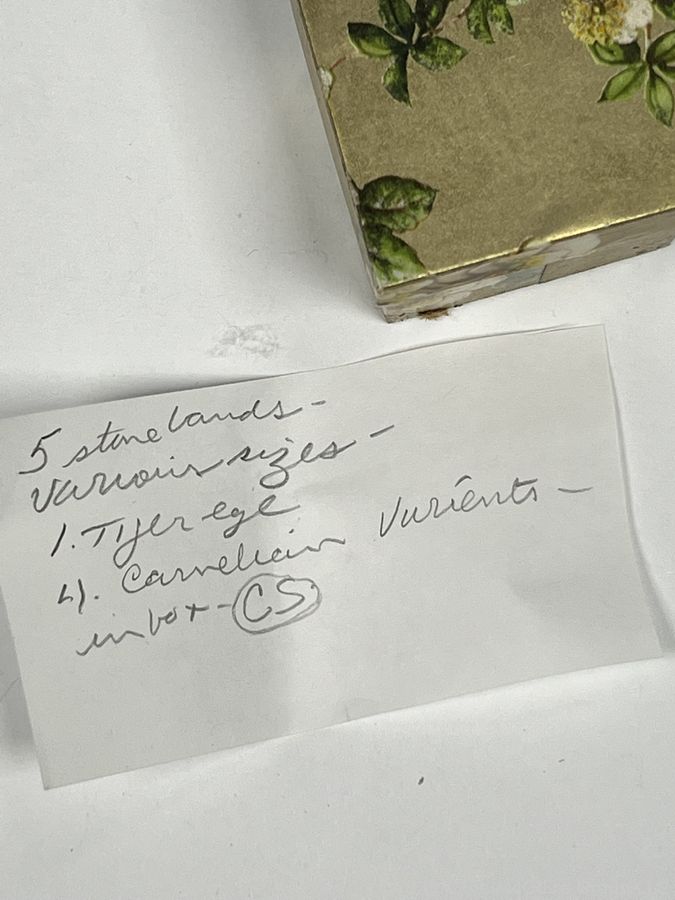 5 stone bands -
various sizes -
1. Tijer eye
4). Carnelian Varients -
in box - CS